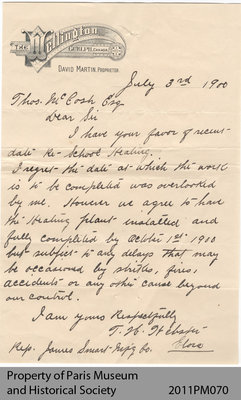 THE Wellington
GUELPH, CANADA
DAVID MARTIN, PROPRIETOR.
July 3rd 1900
Thos. McCosh Esq
Dear Sir
I have your favor of recent
date re School Heating.
I regret the date at which the work
is to be completed was overlooked
by me. However we agree to have
the Heating plant installed and
fully completed by October 1st 1900
but subject to any delays that may
be occasioned by strikes, fires,
accidents or any other cause beyond
our control.
I am yours Respectfully
T. H. Webster
Rep. James Smart Mfg Co.
Property of Paris Museum
and Historical Society
2011PM070